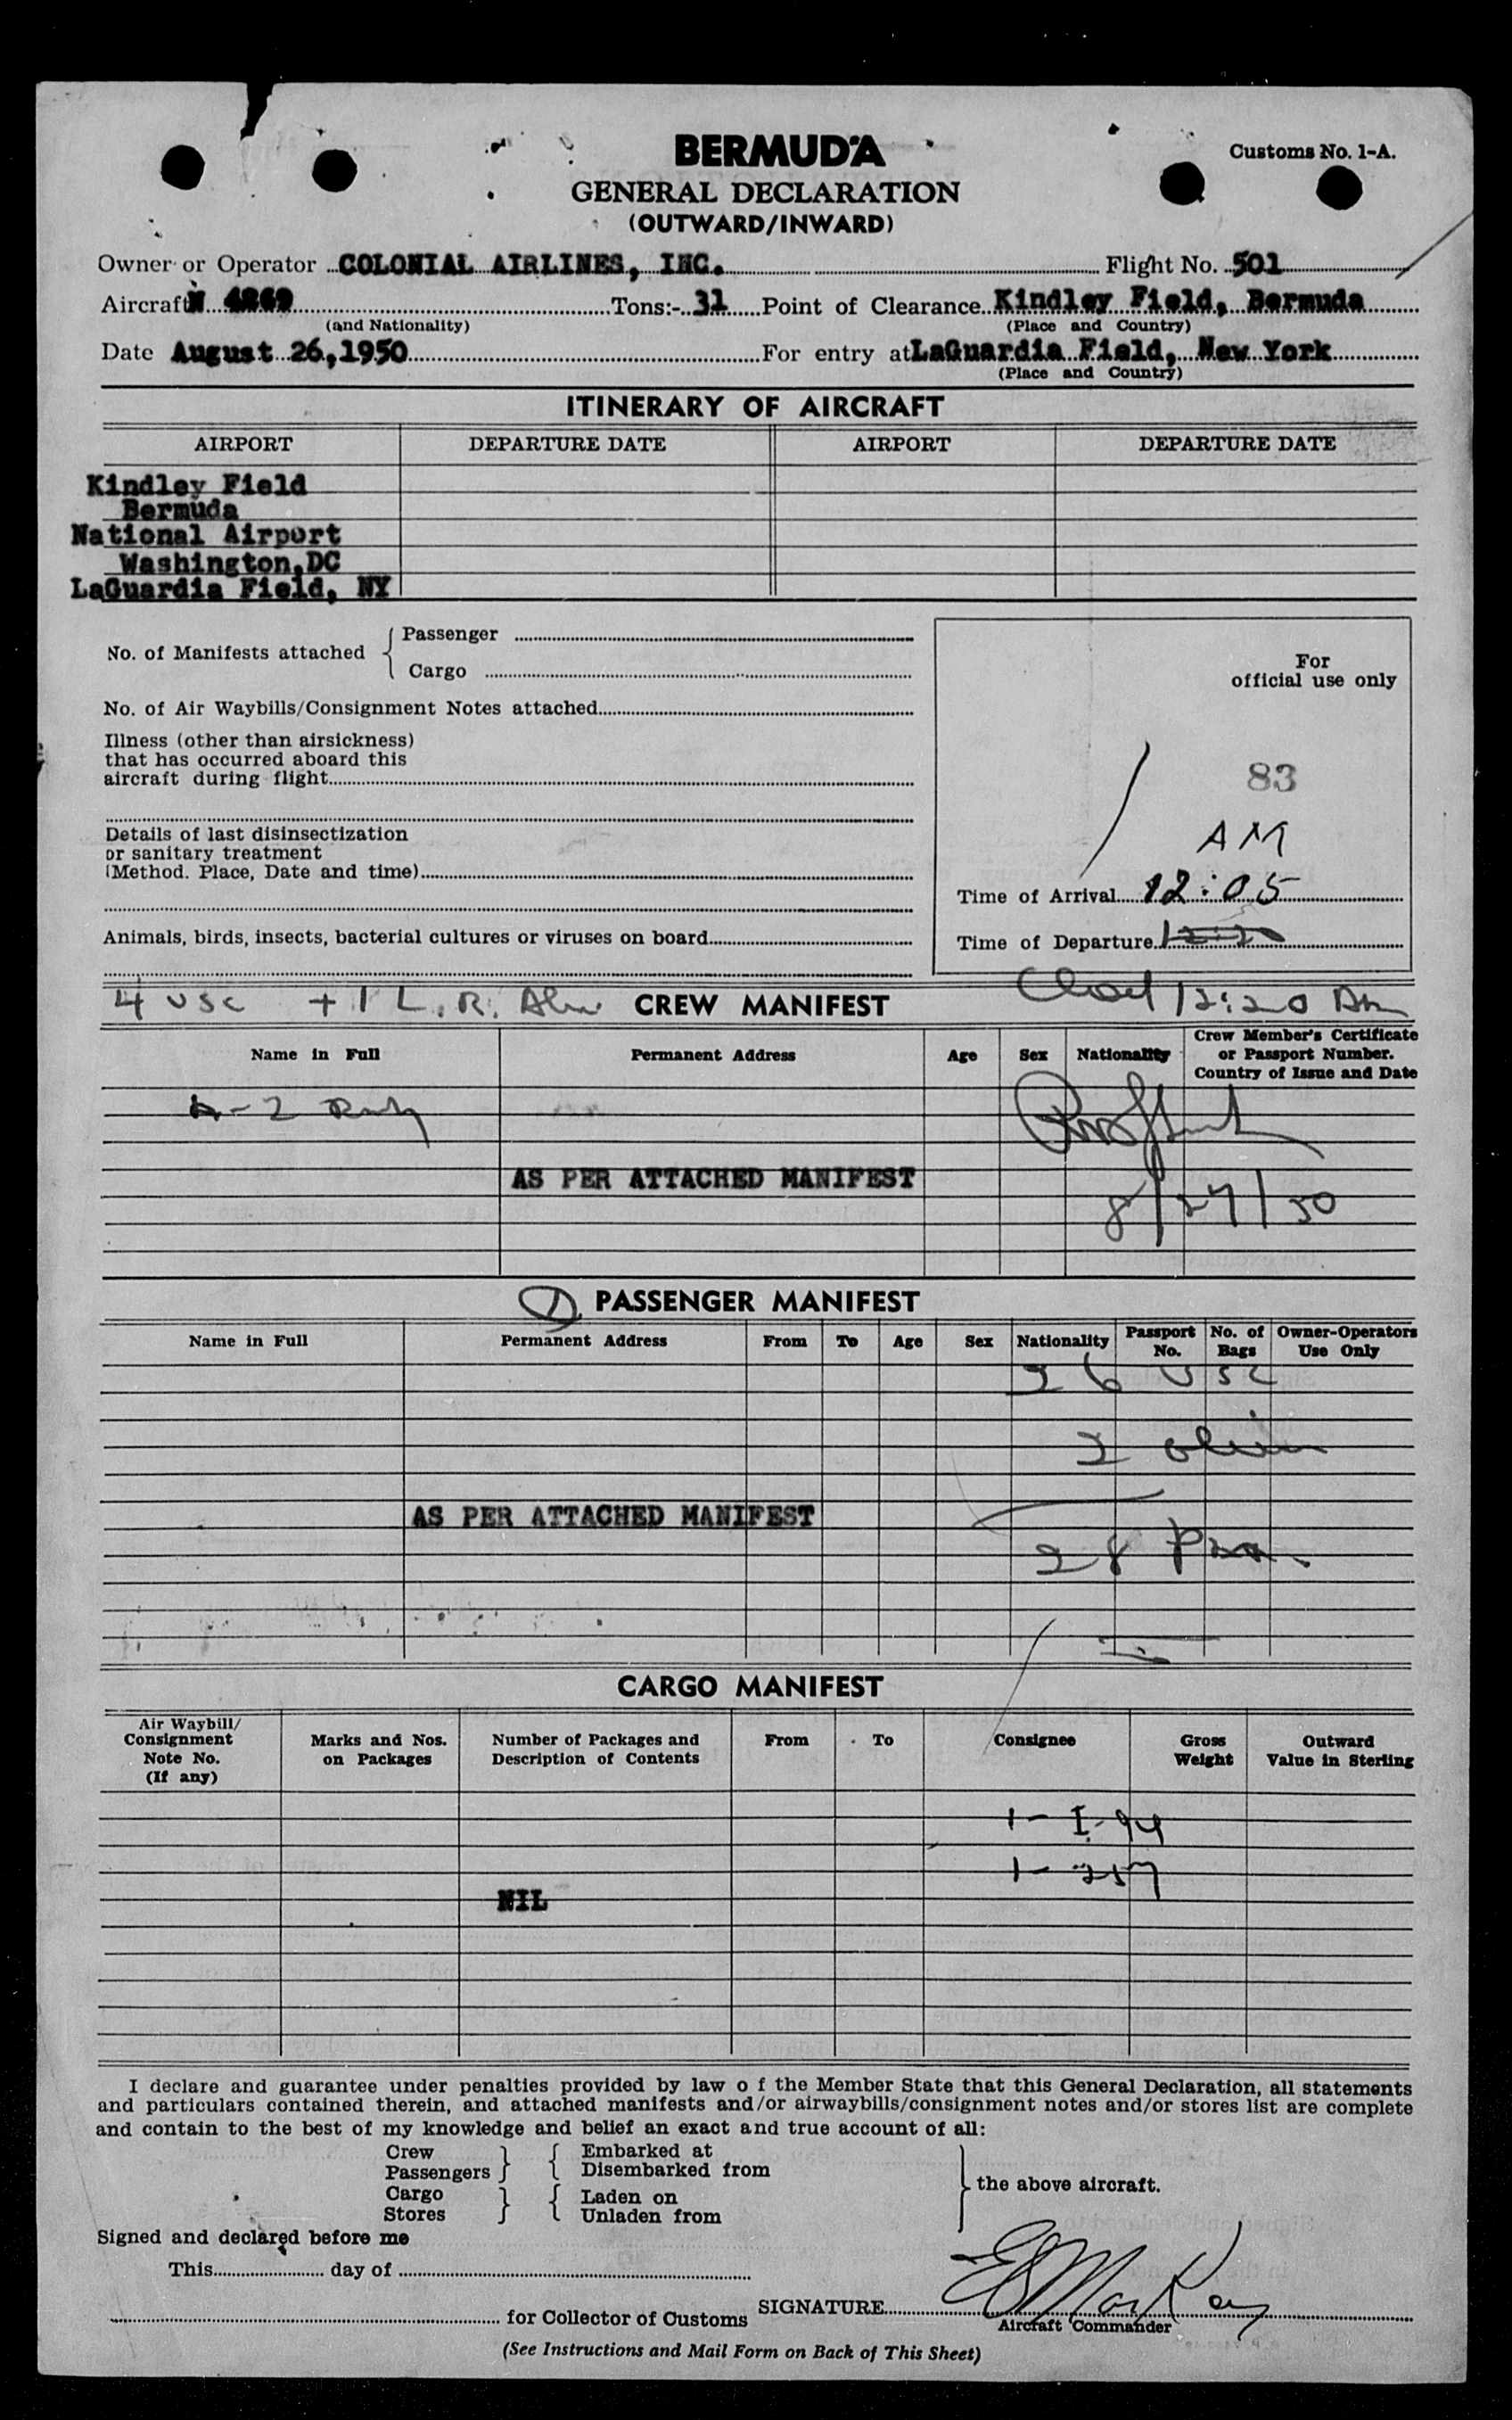 BERMUDA
Customs No. 1-A.
GENERAL DECLARATION
(OUTWARD/INWARD)
Owner or Operator COLONIAL AIRLINES, INC. Flight No. 501
Aircraft N 4869 Tons:- 31 Point of Clearance Kindley Field, Bermuda
(and Nationality) (Place and Country)
Date August 26,1950 For entry at LaGuardia Field, New York
(Place and Country)
ITINERARY OF AIRCRAFT
AIRPORT DEPARTURE DATE AIRPORT DEPARTURE DATE
Kindley Field
Bermuda
National Airport
Washington,DC
LaGuardia Field, NY
No. of Manifests attached { Passenger
Cargo
No. of Air Waybills/Consignment Notes attached
Illness (other than airsickness)
that has occurred aboard this
aircraft during flight
Details of last disinsectization
or sanitary treatment
(Method. Place, Date and time)
Animals, birds, insects, bacterial cultures or viruses on board
For
official use only
83
AM
Time of Arrival 12:05
Time of Departure 12:20
4 USC + 1 L.R. CREW MANIFEST 12:20 Am
Name in Full Permanent Address Age Sex Nationality Crew Member's Certificate
or Passport Number.
Country of Issue and Date
AS PER ATTACHED MANIFEST
8/27/50
PASSENGER MANIFEST
Name in Full Permanent Address From To Age Sex Nationality Passport No. No. of Bags Owner-Operators Use Only
26 USC
2
AS PER ATTACHED MANIFEST
28
CARGO MANIFEST
Air Waybill/
Consignment
Note No.
(If any)
Marks and Nos.
on Packages
Number of Packages and
Description of Contents
From To Consignee Gross
Weight
Outward
Value in Sterling
1 - I-94
1 - 257
NIL
I declare and guarantee under penalties provided by law o f the Member State that this General Declaration, all statements
and particulars contained therein, and attached manifests and/or airwaybills/consignment notes and/or stores list are complete
and contain to the best of my knowledge and belief an exact and true account of all:
Crew } { Embarked at
Passengers } { Disembarked from
Cargo } { Laden on
Stores } { Unladen from
} the above aircraft.
Signed and declared before me
This day of
for Collector of Customs SIGNATURE
Aircraft Commander
(See Instructions and Mail Form on Back of This Sheet)